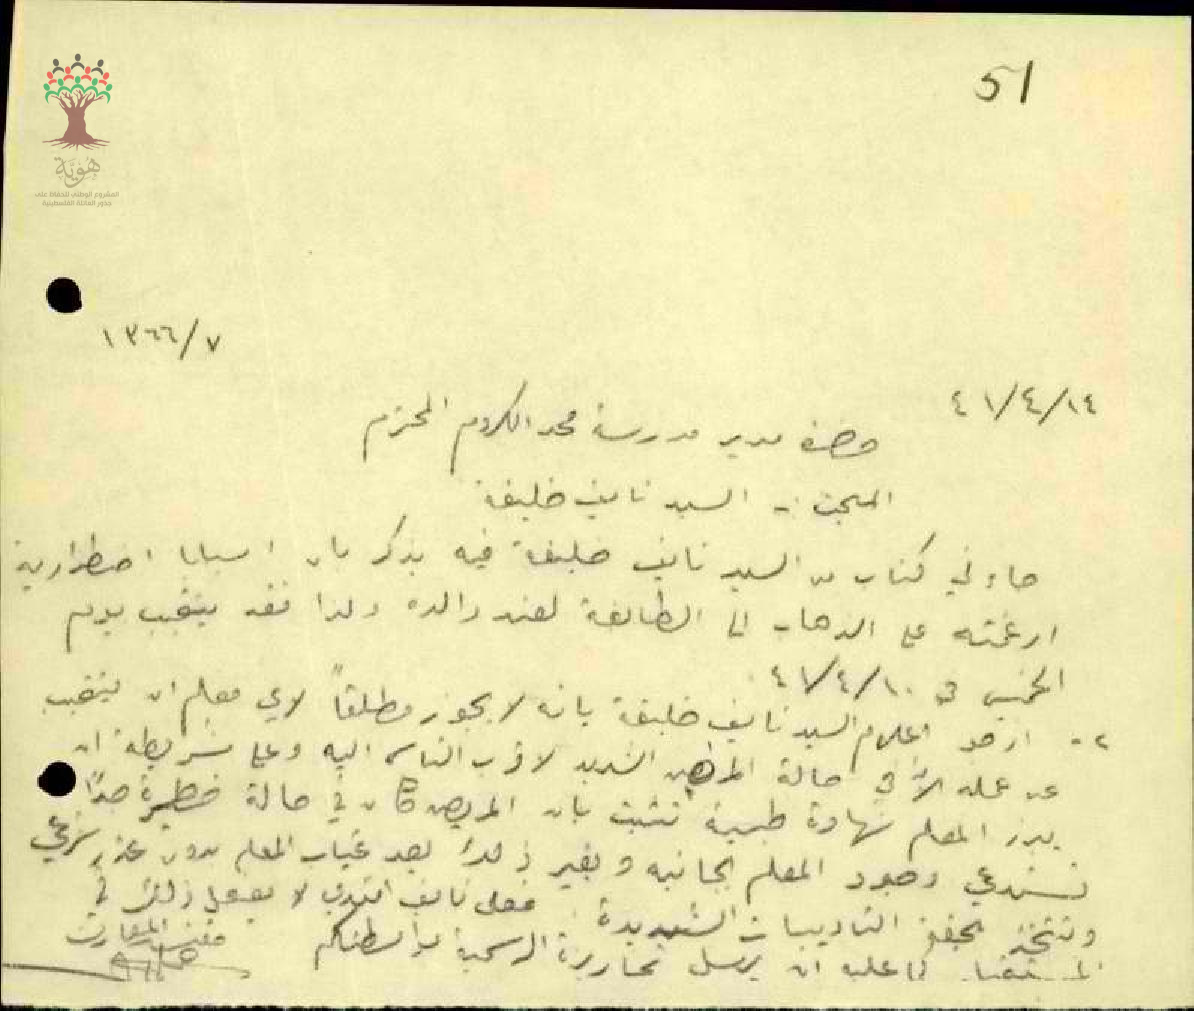 51
هوية
المشروع الوطني للحفاظ على
جذور العائلة الفلسطينية
١٣٦٦/٧
٤١/٤/١٤
حضرة مدير مدرسة مجد الكروم المحترم
المبحث :- السيد نايف خليفة
جاءني كتاب من السيد نايف خليفة فيه يذكر بان اسبابا اضطرارية
ارغمته على الذهاب الى الطالعة لعند والده ولذا فقد يتغيب يوم
الخميس في ٤١/٤/١٠
٢- ارجو اعلام السيد نايف خليفة بانه لا يجوز مطلقاً لاي معلم ان يتغيب
عن عمله الا في حالة المرض الشديد لاقرب الناس اليه وعلى شريطة ان
يبرز المعلم شهادة طبية تثبت بان المريض كان في حالة خطيرة جداً
تستدعي وجود المعلم بجانبه وبغير ذلك يعد غياب المعلم بدون عذر شرعي
وتتخذ بحقه التاديبات الشديدة فعلى نايف افندي لا يفعل ذلك في
المستقبل كما عليه ان يرسل تحاريره الرسمية بواسطتكم
مفتش المعارف